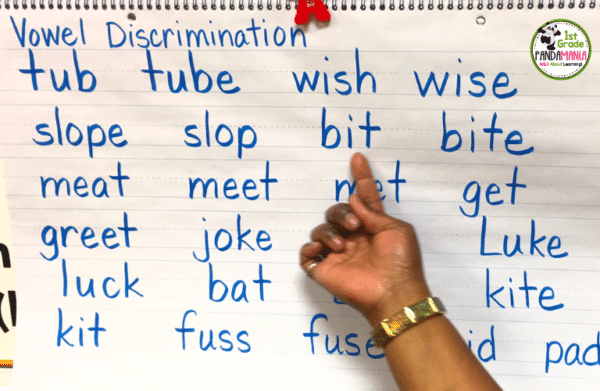 Vowel Discrimination
1st Grade
PANDAMANIA
Wild About Learning!
tub tube wish wise
slope slop bit bite
meat meet met get
greet joke Luke
luck bat kite
kit fuss fuse id pad